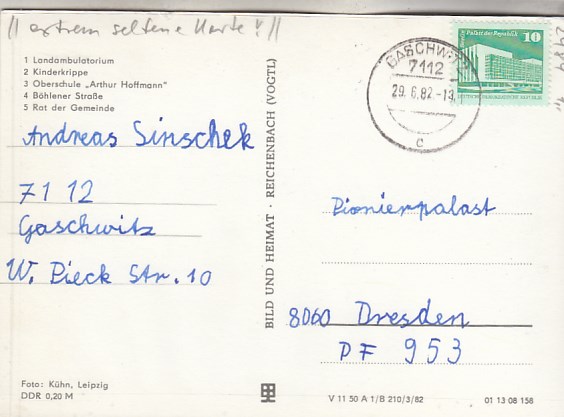 // extrem seltene Karte!! //
1 Landambulatorium
2 Kinderkrippe
3 Oberschule „Arthur Hoffmann“
4 Böhlener Straße
5 Rat der Gemeinde
Andreas Sinschek
7112
Gaschwitz
W. Pieck Str. 10
Foto: Kühn, Leipzig
DDR 0,20 M
BILD UND HEIMAT · REICHENBACH (VOGTL)
GASCHWITZ
7112
29.6.82-19
c
Palast der Republik 10
DEUTSCHE DEMOKRATISCHE REPUBLIK
Pionierpalast
8060 Dresden
PF 953
V 11 50 A 1/B 210/3/82
01 13 08 158